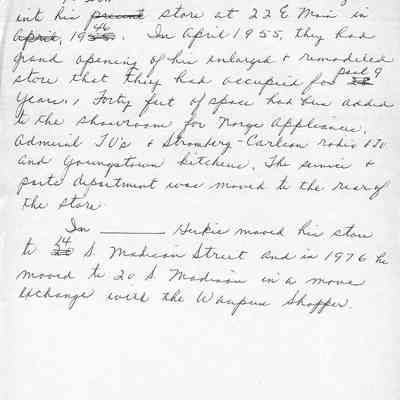 int his present store at 22 E Main in
April, 1955 46. In April 1955, they had
grand opening of his enlarged & remodeled
store that they had occupied for past 9
Years., Forty feet of space had been added
to the showroom for Norge Appliances,
Admiral TV's & Stromberg-Carlson radio & TV
and Youngstown kitchens. The service &
parts department was moved to the rear of
the store.
In ______ Herkie moved his store
to 14 S. Madison Street and in 1976 he
moved to 20 S. Madison in a move
exchange with the Waupun Shopper.